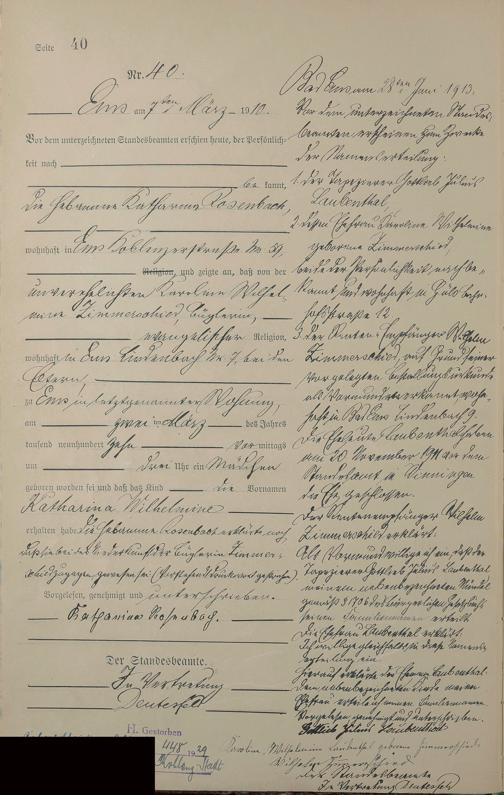 Seite 40
Nr. 40.
Ems am 7ten März 1910.
Vor dem unterzeichneten Standesbeamten erschien heute, der Persönlich-
keit nach
be kannt,
die Hebamme Katharina Rosenbach,
wohnhaft in Ems Koblenzerstraße Nr. 59,
Religion, und zeigte an, daß von der
unverehelichten Karoline Wilhel-
mine Zimmerschied, Büglerin,
evangelischer Religion,
wohnhaft in Ems Lindenbach Nr. 7, bei den
Eltern,
zu Ems, in letztgenannter Wohnung,
am zwei März des Jahres
tausend neunhundert zehn Vor mittags
um drei Uhr ein Mädchen
geboren worden sei und daß das Kind die Vornamen
Katharina Wilhelmine
erhalten habe. Die Hebamme Rosenbach erklärte, noch,
daß sie bei der Niederkunft der Büglerin Zimmer-
schied zugegen gewesen sei.
Vorgelesen, genehmigt und unterschrieben.
Katharina Rosenbach.
Der Standesbeamte.
In Vertretung
H. Gestorben
448 1929
Koblenz-Stadt
Bad Ems am 28ten Juni 1913.
Vor dem unterzeichneten Standes-
beamten erschienen zum Zwecke
der Namenserteilung:
1. der Tapezierer Gottlieb Julius
Laubenthal,
2. dessen Ehefrau Karoline Wilhelmine
geborene Zimmerschied,
beide der Persönlichkeit nach be-
kannt, und wohnhaft in
straße 12
3. der Renten-Empfänger Wilhelm
Zimmerschied, auf Grund seiner
vorgelegten Bestallungsurkunde
als Vormund anerkannt, wohn-
haft in Bad Ems Lindenbach 9.
Die Eheleute Laubenthal haben
am 20 November 1911 vor dem
Standesamt in
die Ehe geschlossen.
Der Rentenempfänger Wilhelm
Zimmerschied erklärt:
Als Vormund willige ich ein, daß der
Tapezierer Gottlieb Julius Laubenthal
meinem nebenbezeichneten Mündel
gemäß § 1706 des Bürgerlichen Gesetzbuchs
seinen Familiennamen erteilt.
Die Ehefrau Laubenthal erklärt:
Ich willige gleichfalls in diese Namens-
erteilung ein.
Hierauf erklärte der Ehemann Laubenthal:
Dem nebenbezeichneten Kinde meiner
Ehefrau erteile ich meinen Familiennamen.
Vorgelesen, genehmigt und unterschrieben.
Gottlieb Julius Laubenthal
Karoline, Wilhelmine Laubenthal geborene Zimmerschied
Wilhelm Zimmerschied
Der Standesbeamte
In Vertretung